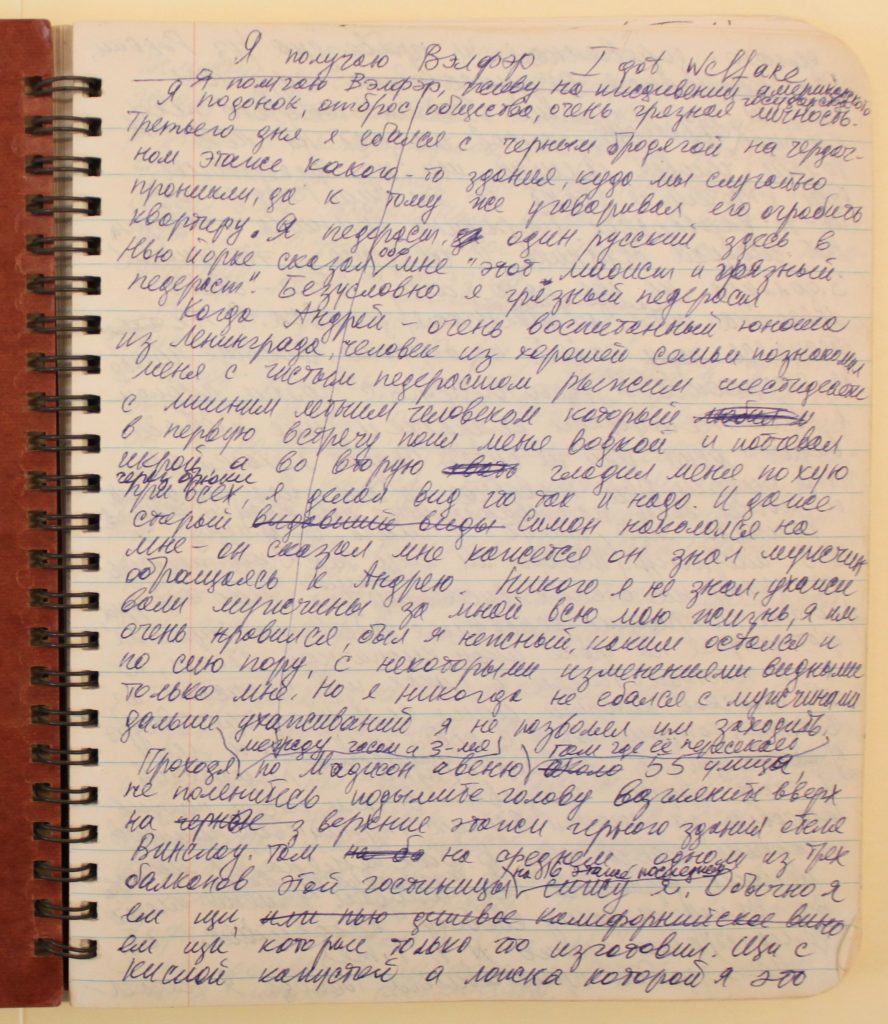 Я получаю Вэлфэр I got Welfare
Я получаю Вэлфэр, живу на иждивении американского
государства
Я подонок, отброс общества, очень грязная личность.
Третьего дня я ебался с черным бродягой на чердач-
ном этаже какого-то здания, куда мы случайно
проникли, да к тому же уговаривал его ограбить
квартиру. Я педераст, один русский здесь в
Нью Йорке сказал обо мне "этот маоист и грязный
педераст". Безусловно я грязный педераст
Когда Андрей - очень воспитанный юноша
из Ленинграда, человек из хорошей семьи познакомил
меня с чистым педерастом рыжим шестидесяти
с лишним летним человеком который любил и
в первую встречу поил меня водкой и потчевал
икрой, а во вторую гладил меня по хую
через брюки
при всех, я делал вид что так и надо. И даже
старый видавший виды Симон накололся на
мне - он сказал мне кажется он знал мужчин
обращаясь к Андрею. Никого я не знал, ухажи
вали мужчины за мной всю мою жизнь, я им
очень нравился, был я нежный, каким остался и
по сию пору, с некоторыми изменениями видными
только мне. Но я никогда не ебался с мужчинами
дальше ухаживаний я не позволял им заходить.
между часом и 3-мя там где её пересекает
Проходя по Мадисон авеню около 55 улица,
не поленитесь подымите голову взгляните вверх
на верхние этажи черного здания отеля
Винслоу. Там на среднем одном из трех
на 16 этаже последнем
балконов этой гостиницы сижу я. Обычно я
ем щи, или пью дешевое калифорнийское вино
ем щи, которые только что изготовил. Щи с
кислой капустой а миска которой я это